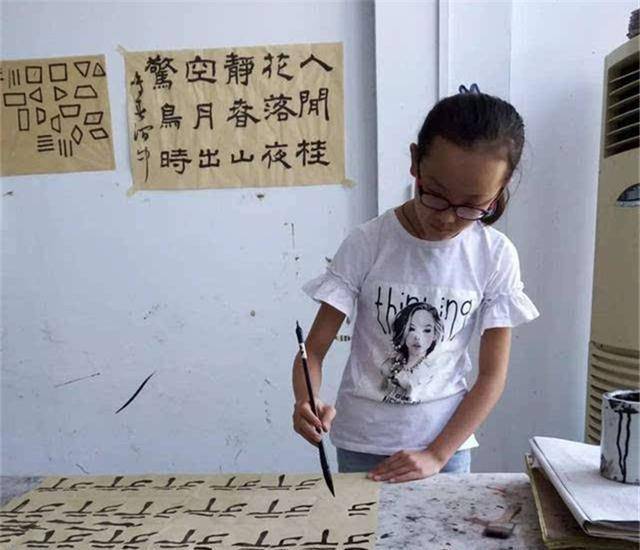 人閒桂
花落夜
靜春山
空月出
驚鳥時
thinking